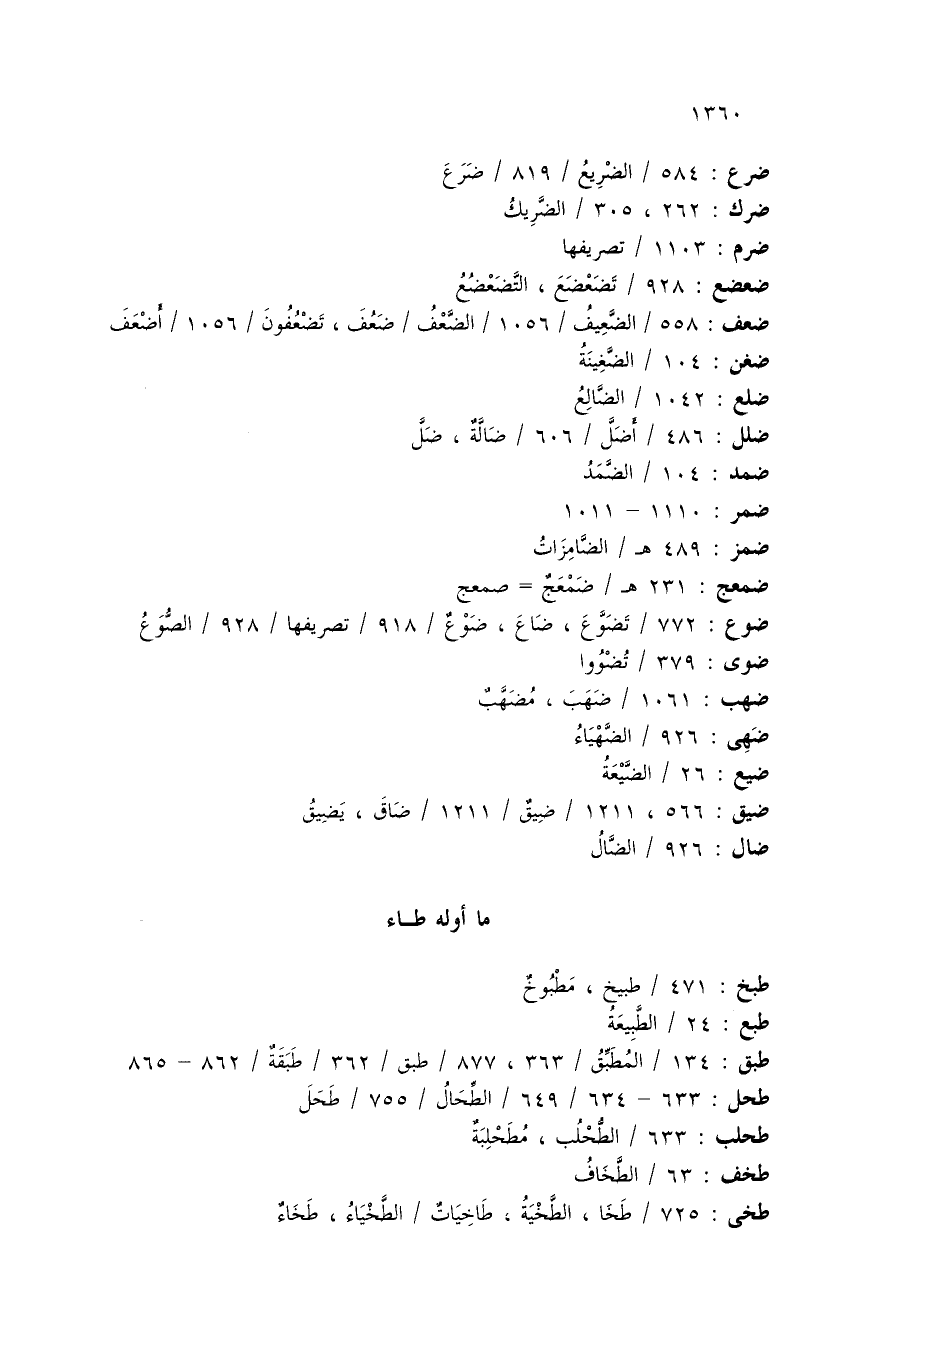 ١٣٦٠
ضرع : ٥٨٤ / الضْرِيعُ / ٨١٩ / ضَرَعَ
ضرك : ٢٦٢ ، ٣٠٥ / الضَّرِيكُ
ضرم : ١١٠٣ / تصريفها
ضعضع : ٩٢٨ / تَضَعْضَعَ ، التَّضَعْضُعُ
ضعف : ٥٥٨ / الضَّعِيفُ / ١٠٥٦ / الضَّعْفُ / ضَعُفَ ، تَضْعُفُونَ / ١٠٥٦ / أَضْعَفَ
ضغن : ١٠٤ / الضَّغِينَةُ
ضلع : ١٠٤٢ / الضَّالِعُ
ضلل : ٤٨٦ / أَضَلَّ / ٦٠٦ / ضَالَّةٌ ، ضَلَّ
ضمد : ١٠٤ / الضَّمَدُ
ضمر : ١١١٠ – ١٠١١
ضمز : ٤٨٩ هـ / الضَّامِزَاتُ
ضمعج : ٢٣١ هـ / ضَمْعَجٌ = صمعج
ضوع : ٧٧٢ / تَضَوَّعَ ، ضَاعَ ، ضَوْعٌ / ٩١٨ / تصريفها / ٩٢٨ / الضُّوَعُ
ضوى : ٣٧٩ / تُضْوُوا
ضهب : ١٠٦١ / ضَهَبَ ، مُضَهَّبٌ
ضَهِى : ٩٢٦ / الضَّهْيَاءُ
ضيع : ٢٦ / الضَّيْعَةُ
ضيق : ٥٦٦ ، ١٢١١ / ضِيقٌ / ١٢١١ / ضَاقَ ، يَضِيقُ
ضال : ٩٢٦ / الضَّالُ
ما أوله طـاء
طبخ : ٤٧١ / طبيخ ، مَطْبُوخٌ
طبع : ٢٤ / الطَّبِيعَةُ
طبق : ١٣٤ / المُطَبِّقُ / ٣٦٣ ، ٨٧٧ / طبق / ٣٦٢ / طَبَقَةٌ / ٨٦٢ – ٨٦٥
طحل : ٦٣٣ – ٦٣٤ / ٦٤٩ / الطِّحَالُ / ٧٥٥ / طَحَلَ
طحلب : ٦٣٣ / الطُّحْلُب ، مُطَحْلِبَةٌ
طخف : ٦٣ / الطَّخَافُ
طخى : ٧٢٥ / طَخَا ، الطَّخْيَةُ ، طَاخِيَاتٌ / الطَّخْيَاءُ ، طَخَاءٌ